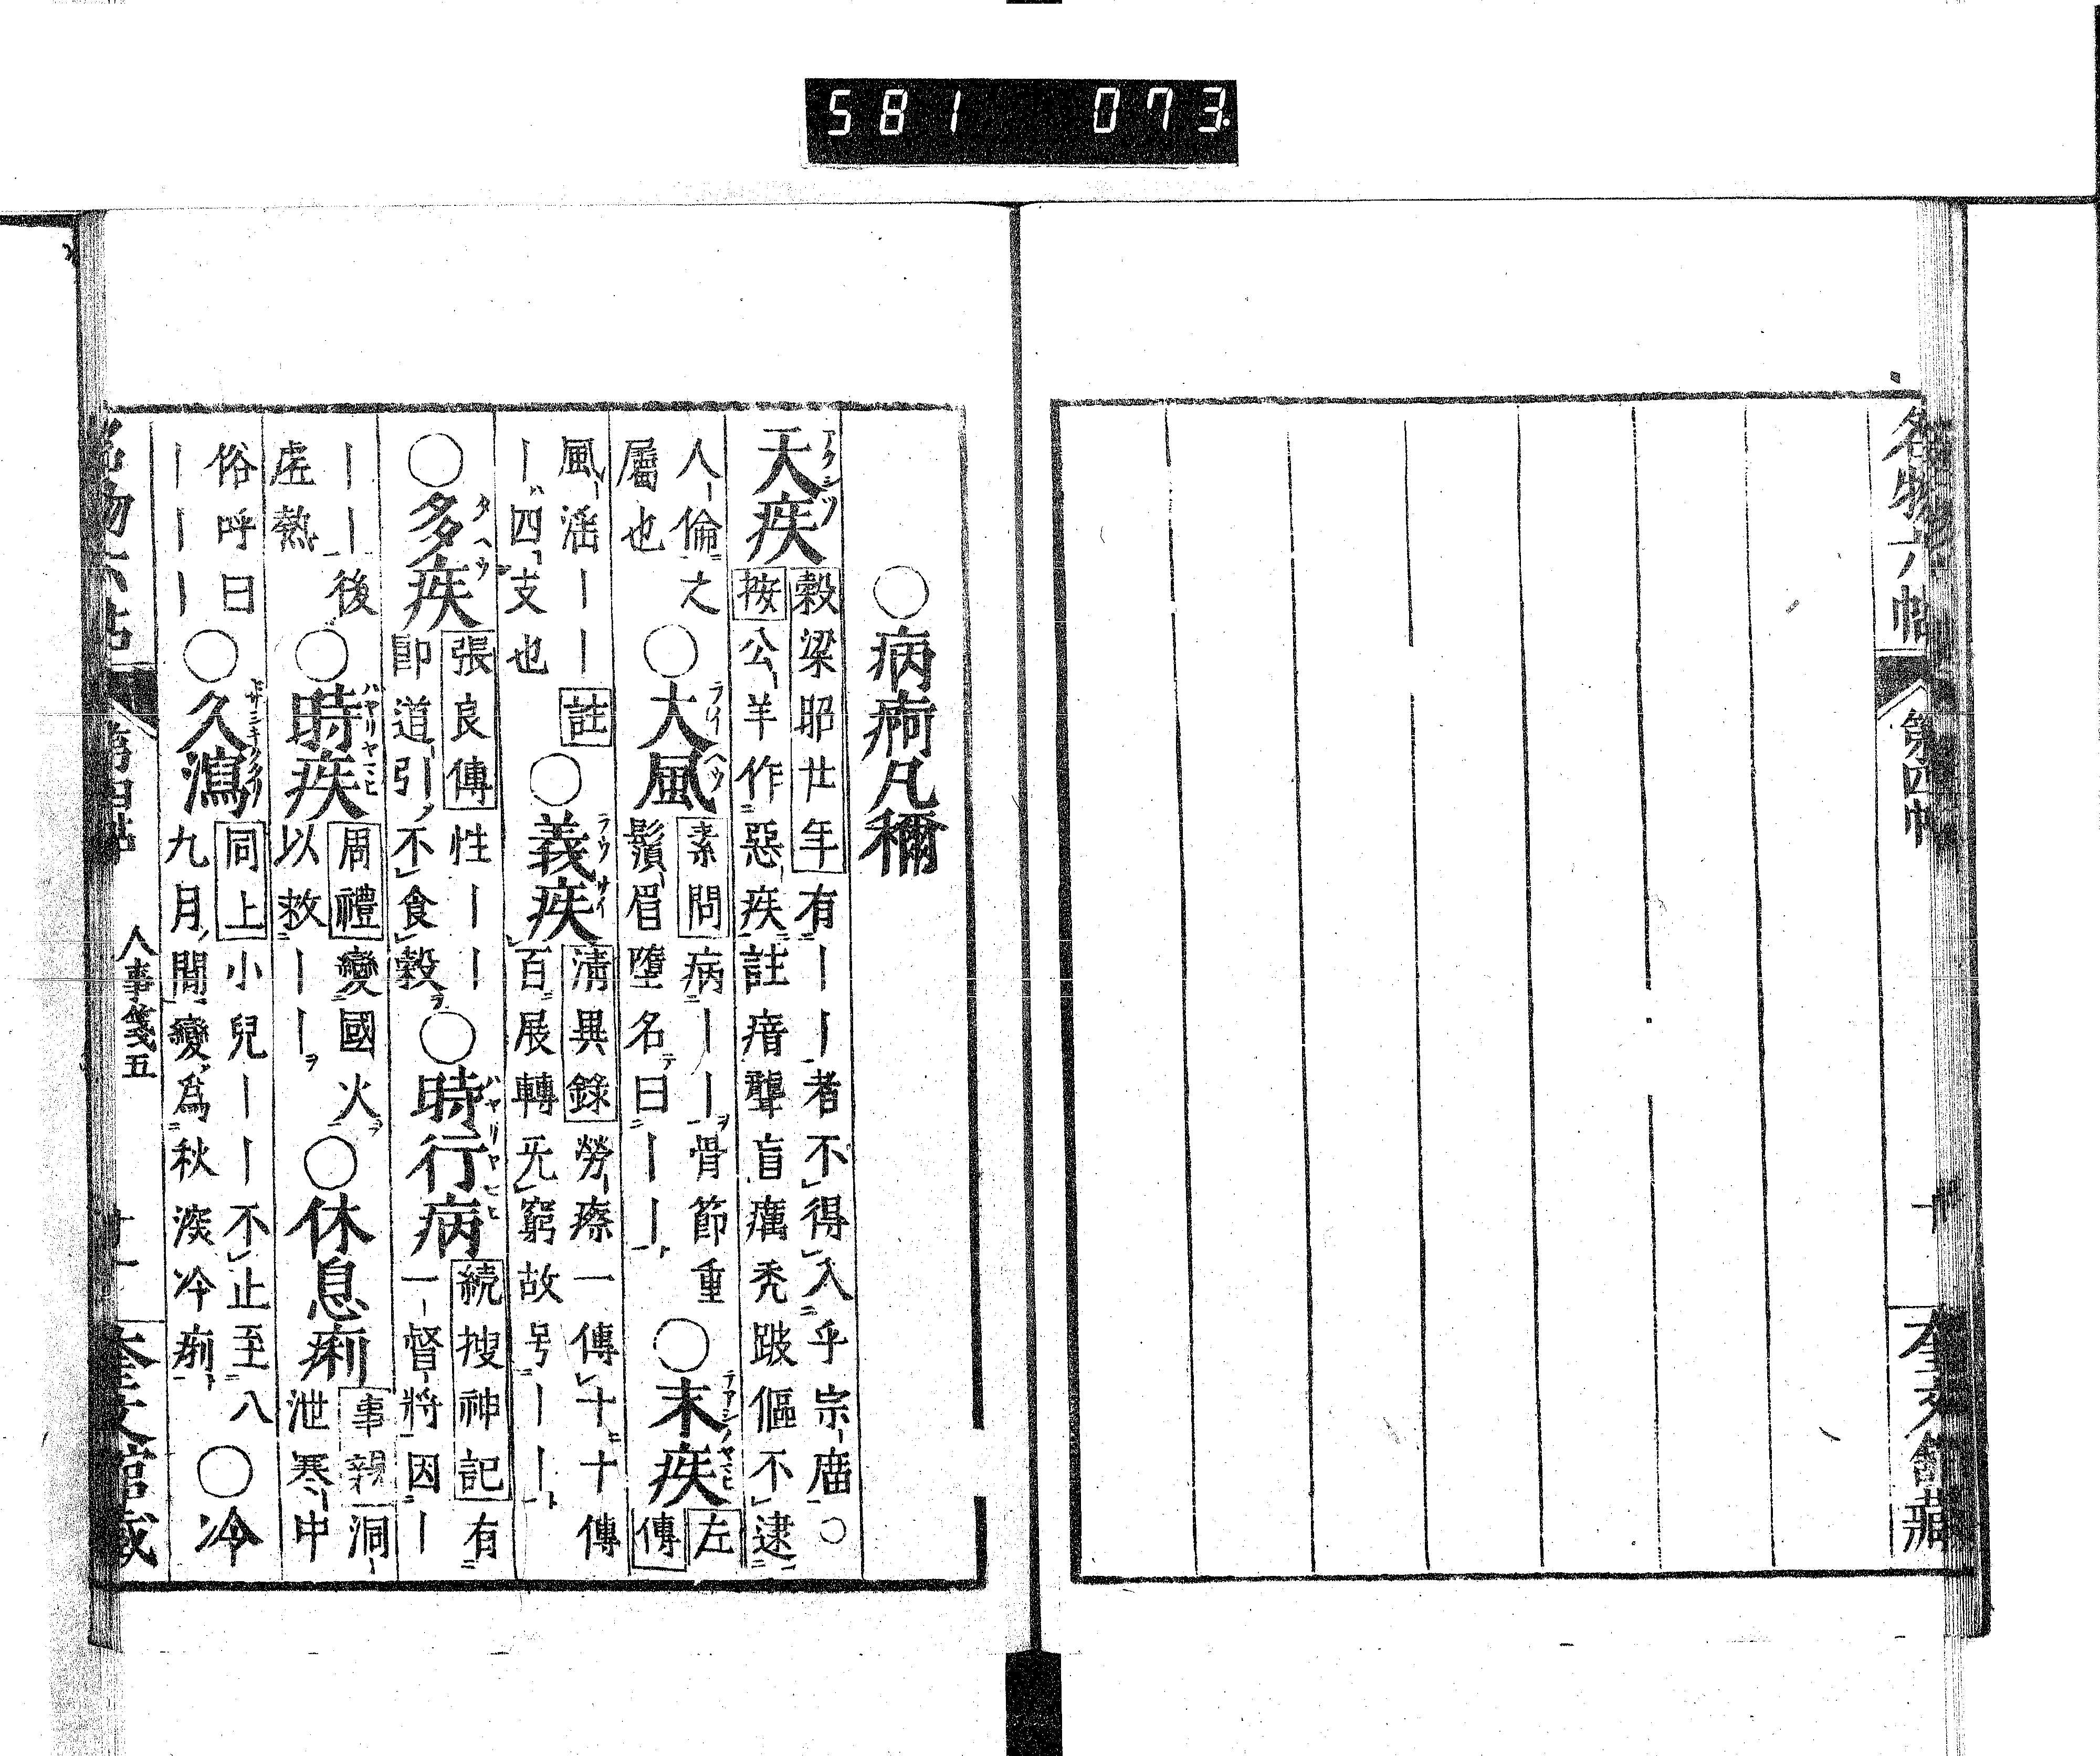 581 073
名物六帖 第四帖 十 奎文館蔵
○病痾凡稱
天疾 アクシツ 穀梁昭廿年 有｜｜者不得入乎宗廟○
按公羊作惡疾註瘖聾盲癘禿跛傴不逮
人倫之
屬也
○大風 ライヘウ 素問 病｜｜骨節重
鬚眉墮名曰｜｜
○末疾 テアシノヤマヒ 左傳
風淫｜｜註
｜四支也
○義疾 ラウサイ 清異錄 勞瘵一傳十十傳
百展轉无窮故号｜｜
○多疾 張良傳 性｜｜
即道引不食穀
○時行病 ハヤリヤマヒ 続搜神記 有
一督將因｜
｜｜後
虚熱
○時疾 ハヤリヤマヒ 周禮 變國火
以救｜｜
○休息痢 事親 洞
泄寒中
俗呼曰
｜｜｜
○久瀉 同上 小兒｜｜不止至八
九月間變爲秋深冷痢
○冷
名物六帖 第四帖 人事箋五 十一 奎文館蔵